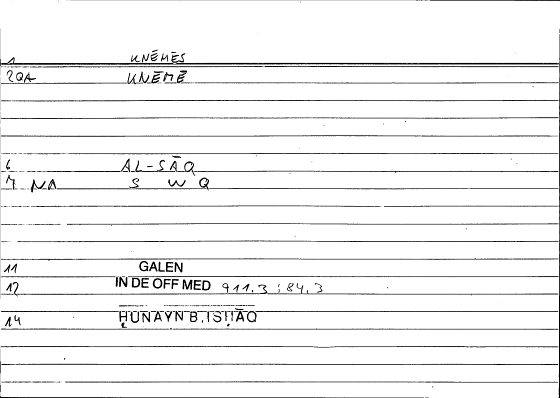 1 KNĒMĒS
2QA KNĒMĒ
6 AL-SĀQ
7 NA S W Q
11 GALEN
12 IN DE OFF MED 911,3 ; 84,3
14 ḤUNAYN B. ISḤĀQ